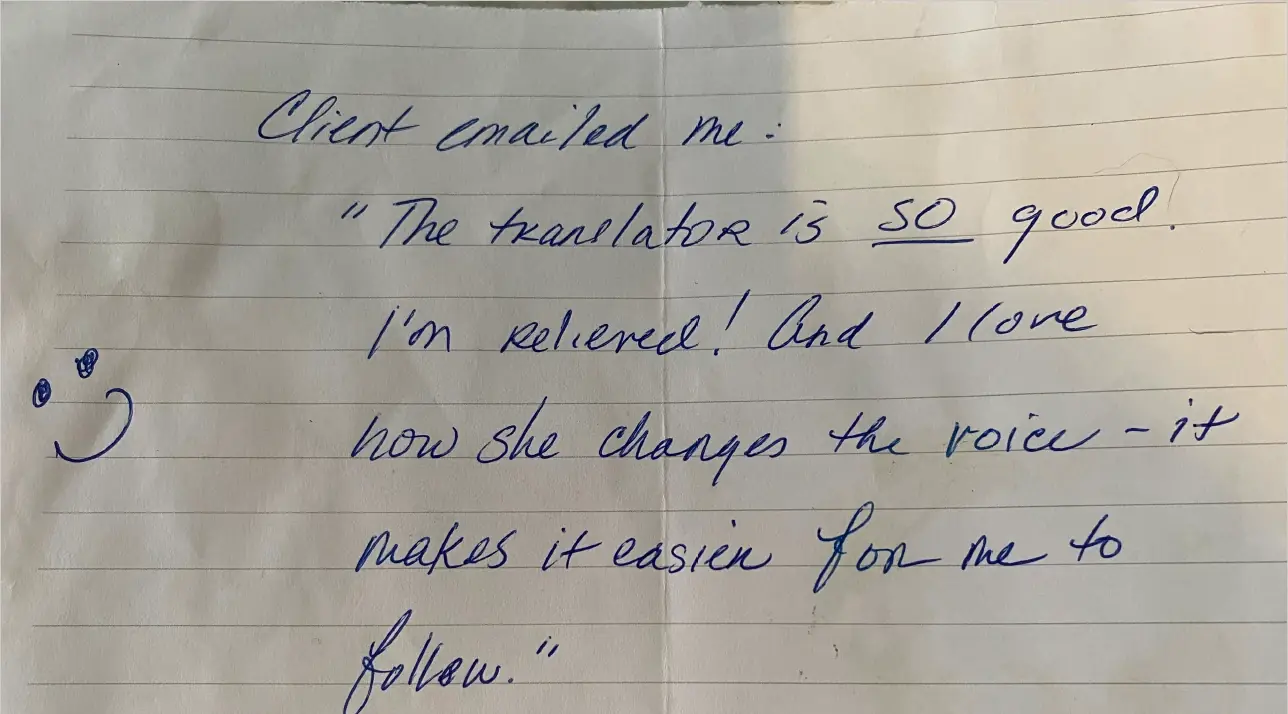 Client emailed me:
"The translator is SO good.
I'm relieved! And I love
how she changes the voice - it
makes it easier for me to
follow."